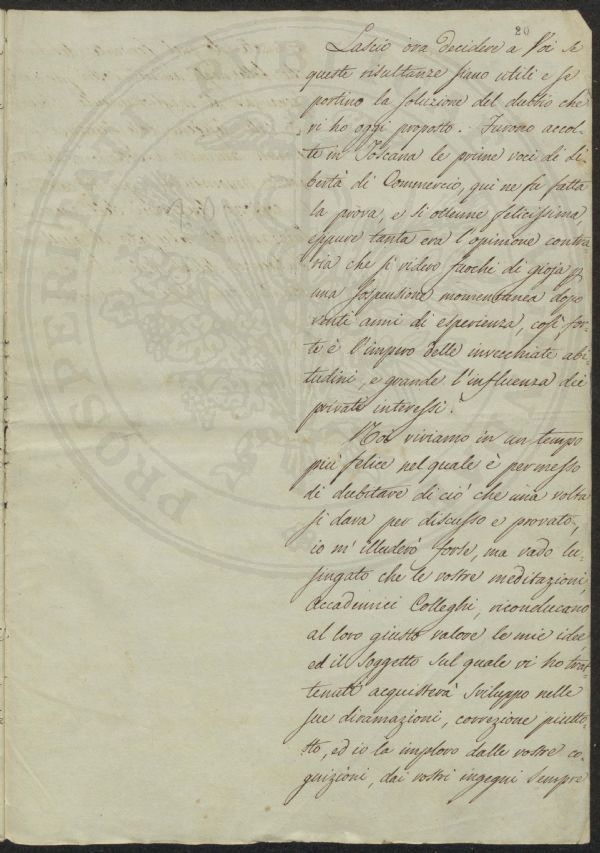 20
Lascio ora decidere a Voi se
queste risultanze siano utili e se
portino la soluzione del dubbio che
vi ho oggi proposto. Furono accol-
te in Toscana le prime voci di Li
bertà di Commercio, qui ne fu fatta
la prova, e si ottenne felicissima
eppure tanta era l'opinione contra
ria che si videro fuochi di gioja p
una sospensione momentanea dopo
venti anni di esperienza, così for-
te è l'impero delle invecchiate abi
tudini, e grande l'influenza dei
privati interessi!
Noi viviamo in un tempo
più felice nel quale è permesso
di dubitare di ciò che una volta
si dava per discusso e provato,
io m'illuderò forse, ma vado lu-
singato che le vostre meditazioni
Accademici Colleghi, riconducano
al loro giusto valore le mie idee
ed il soggetto sul quale vi ho trat-
tenuti acquisterà sviluppo nelle
sue diramazioni, correzione piutto-
sto, ed io la imploro dalle vostre co-
gnizioni, dai vostri ingegni sempre
PROSPERITAS PUBLIC